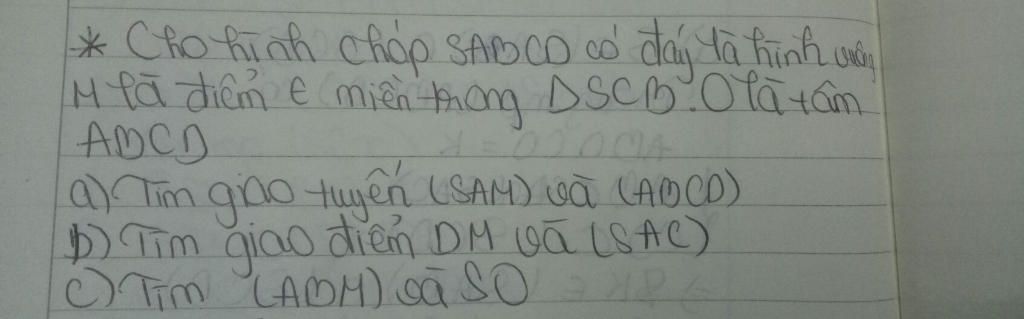 * Cho hình chóp SABCD có đáy là hình vuông
M là điểm ∈ miền trong ΔSCB. O là tâm
ABCD
a) Tìm giao tuyến (SAM) và (ABCD)
b) Tìm giao điểm DM và (SAC)
c) Tìm (ABM) và SO